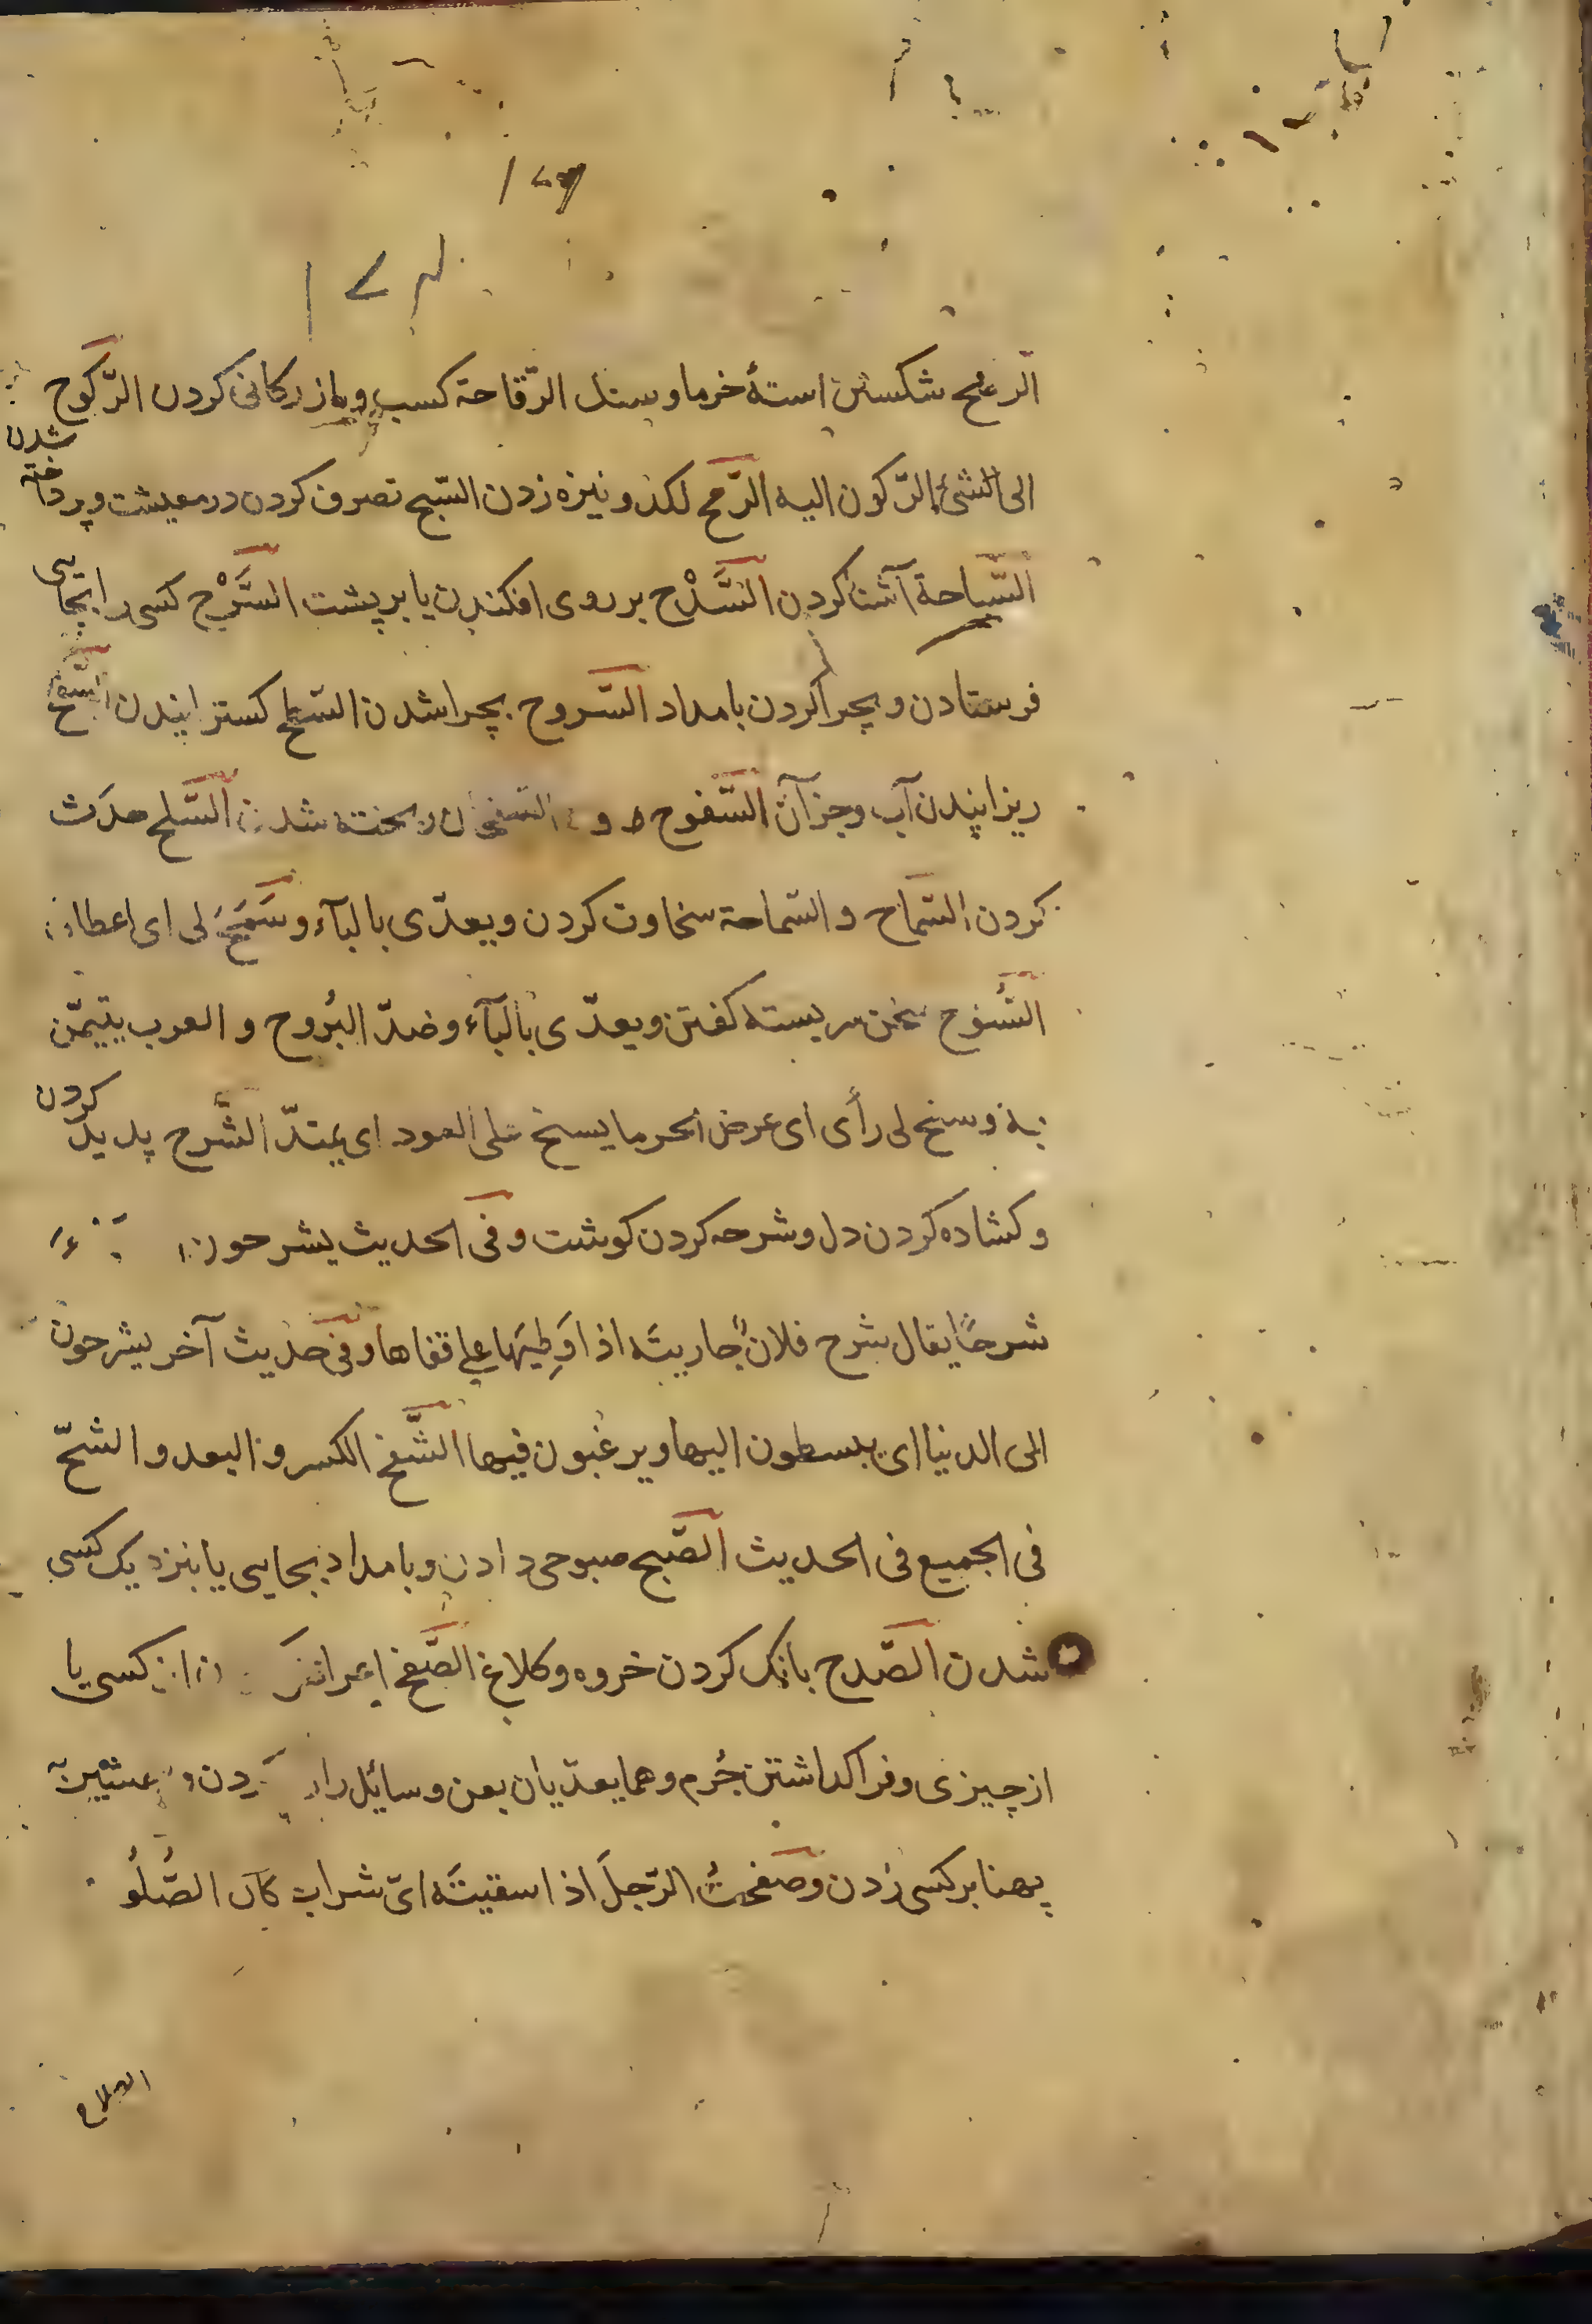 الرضح شکستن استهٔ خرما و سنک الرّقاحة کسب و بازرکانی کردن الرّکوح
الی الشیٔ الرّکون الیه الرّمح لکد و نیزه زدن السّبح تصرف کردن در معیشت و پرداخته شدن
السّباحة آشنا کردن السَّدْح بر روی افکندن یا بر پشت السَّرْح کسی را بجایی
فرستادن و بچرا کردن بامداد السّروح بچرا شدن السّطح کسترانیدن السّفح
ریزانیدن آب و جز آن السَّفوح و السفحان ریخته شدن السَّلح حدَث
کردن السَّماح و السّماحة سخاوت کردن و یعدّی بالبآء و سَمَحَ لی ای اعطانی
السُّنوح سخن سربسته کفتن و یعدّی بالبآء و ضدّ البُروح و العرب یتیمّن
به و سنح لی رأی ای عرض علی العود ای یمتدّ الشَّرح پدید کردن
و کشاده کردن دل و شرحه کردن کوشت و فی الحدیث یشرحون
شرحًا یقال شرح فلانٌ جاریتَه اذا وَطِیَها علی قفاها و فی حدیث آخر یشرحون
الی الدنیا ای یبسطون الیها و یرغبون فیها الشَّقح الکسر و البعد و الشحّ
فی الجمیع فی الحدیث الصَّبح صبوحی دادن و بامداد بجایی یا بنزدیک کسی
شدن الصَّدح بانک کردن خروه و کلاغ الصَّفح اعراض کسی یا
از چیزی و فراکذاشتن جُرم و هما یعدّیان بعن و سایل را و
پهنا بر کسی زدن و صفحتُ الرّجلَ اذا سقیتَه ایّ شراب کان الصُّلو
الصلاح